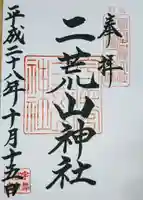 奉拝
二荒山神社
平成二十八年十月十五日